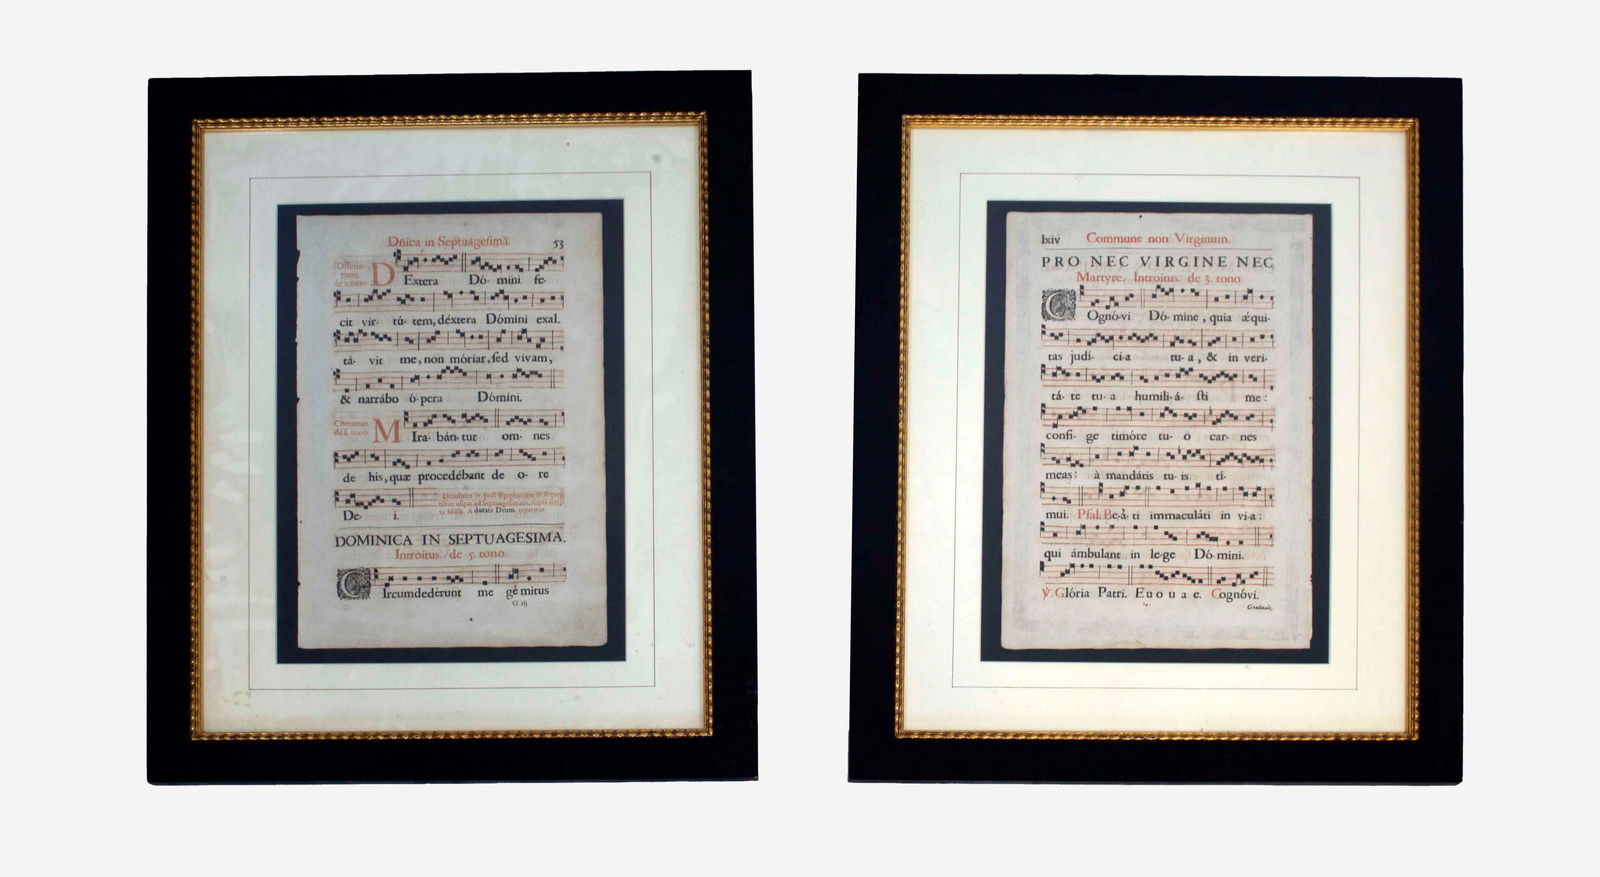 Dñica in Septuagesima. 53
Offerto-
rium.
DExtera Dó- mini fe-
cit vir- tú- tem, déxtera Dómini exal-
tá- vit me, non móriar, sed vivam,
& narrábo ó-pera Dómini.
Comunio.
de 8. tono.
MIra- bán-tur om- nes
de his, quæ procedébant de o- re
Dominica iv. post Epiphaniam &
usque ad Septuagesimam, supra
Missa. Adorate Deum.
De- i.
DOMINICA IN SEPTUAGESIMA.
Introitus. de 5. tono.
CIrcumdedérunt me gémitus
G iij
lxiv Commune non Virginum.
PRO NEC VIRGINE NEC
Martyre. Introitus de 3. tono.
COgnó-vi Dó-mine, quia æqui-
tas judí- ci-a tu-a, & in veri-
tá-te tu-a humili-á- sti me:
confí- ge timóre tu- o car- nes
meas: à mandátis tu-is tí-
mui. Psal. Be-á-ti immaculáti in vi-a:
qui ámbulant in le-ge Dó-mini.
℣. Glória Patri. E u o u a e. Cognóvi.
Graduale,